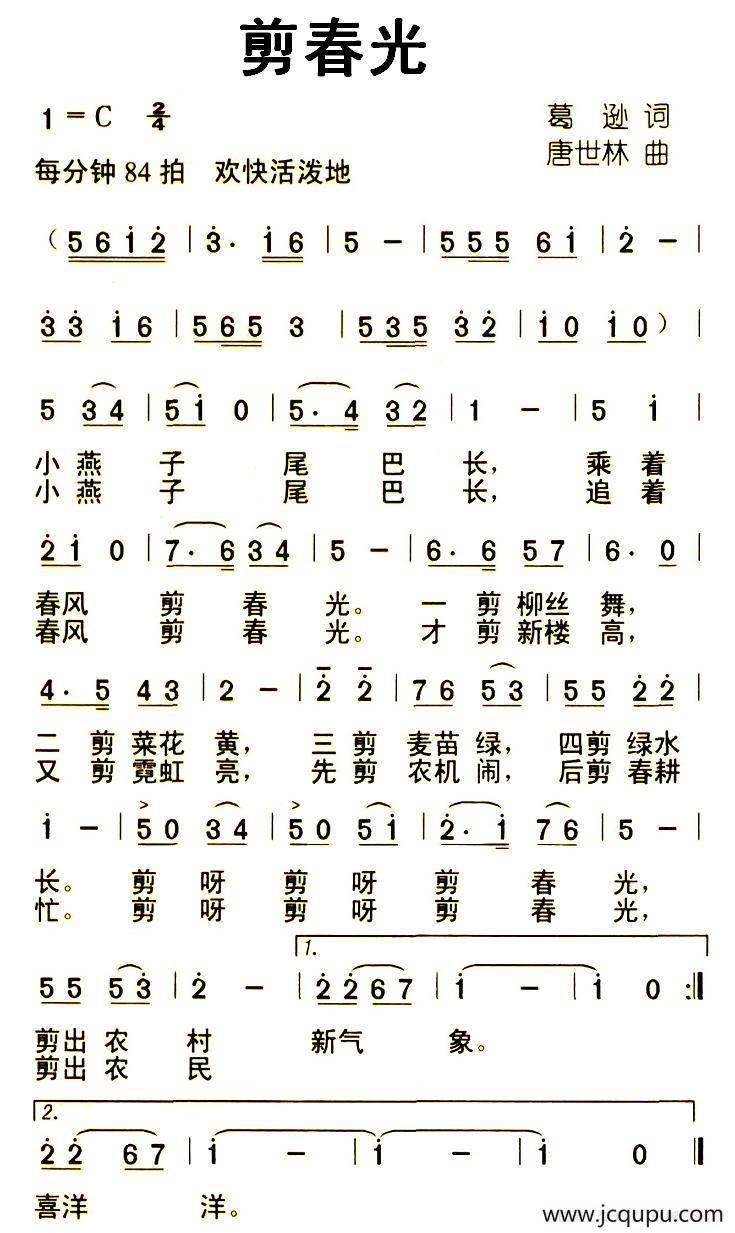 剪春光
1=C 2/4
葛逊 词
每分钟 84 拍 欢快活泼地
唐世林 曲
(5 6 i 2̇ | 3̇. i 6 | 5 - | 5 5 5 6 i | 2̇ - |
3̇ 3̇ i 6 | 5 6 5 3 | 5 3 5 3̇ 2̇ | i 0 i 0) |
5 3 4 | 5 i 0 | 5. 4 3 2 | 1 - | 5 i |
小燕 子 尾 巴 长, 乘着
小燕 子 尾 巴 长, 追着
2̇ i 0 | 7. 6 3 4 | 5 - | 6. 6 5 7 | 6. 0 |
春风 剪 春 光。 一 剪 柳丝 舞,
春风 剪 春 光。 才 剪 新楼 高,
4. 5 4 3 | 2 - | 2̇ 2̇ | 7 6 5 3̇ | 5 5 2̇ 2̇ |
二 剪 菜花 黄, 三 剪 麦苗 绿, 四剪 绿水
又 剪 霓虹 亮, 先 剪 农机 闹, 后剪 春耕
i - | 5 0 3 4 | 5 0 5 i | 2̇. i 7 6 | 5 - |
长。 剪 呀 剪 呀 剪 春 光,
忙。 剪 呀 剪 呀 剪 春 光,
1.
5 5 5 3̇ | 2̇ - | 2̇ 2̇ 6 7 | i - | i 0 :|
剪出 农 村 新气 象。
剪出 农 民
2.
2̇ 2̇ 6 7 | i - | i - | i 0 |
喜洋 洋。
www.jcqupu.com